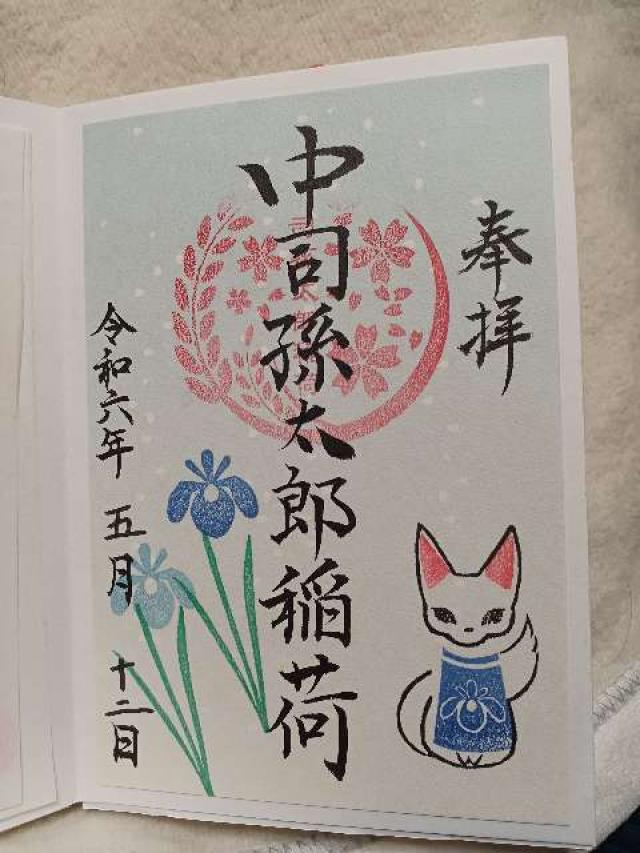 奉拝
中司孫太郎稲荷
令和六年 五月 十二日